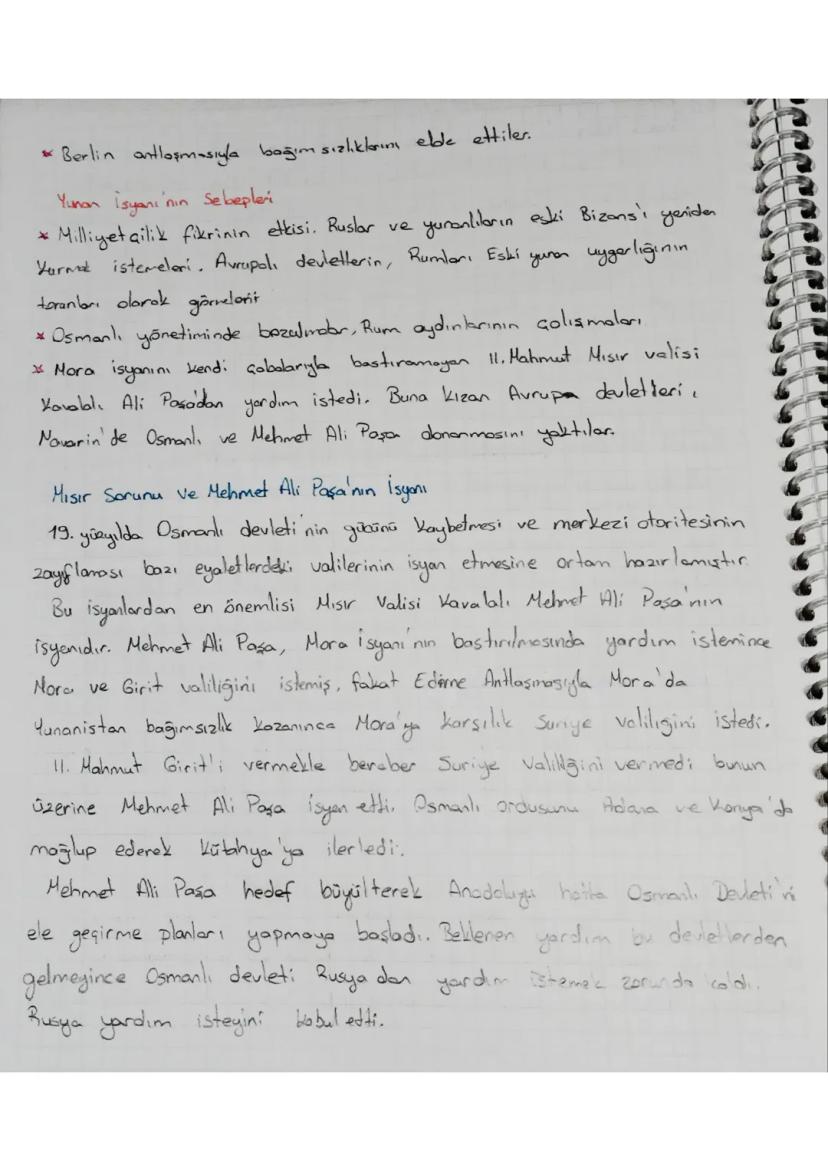 * Berlin antlaşmasıyla bağımsızlıklarını elde ettiler.
Yunan İsyanı'nın Sebepleri
* Milliyetçilik fikrinin etkisi. Ruslar ve yunanlıların eski Bizans'ı yeniden
kurmak istemeleri. Avrupalı devletlerin, Rumları Eski yunan uygarlığının
torunları olarak görmeleri
* Osmanlı yönetiminde bozulmalar, Rum aydınlarının çalışmaları
* Mora isyanını kendi çabalarıyla bastıramayan II. Mahmut Mısır valisi
Kavalalı Ali Paşa'dan yardım istedi. Buna kızan Avrupa devletleri,
Navarin'de Osmanlı ve Mehmet Ali Paşa donanmasını yaktılar.
Mısır Sorunu ve Mehmet Ali Paşa'nın İsyanı
19. yüzyılda Osmanlı devleti'nin gücünü kaybetmesi ve merkezi otoritesinin
zayıflaması bazı eyaletlerdeki valilerinin isyan etmesine ortam hazırlamıştır.
Bu isyanlardan en önemlisi Mısır Valisi Kavalalı Mehmet Ali Paşa'nın
isyanıdır. Mehmet Ali Paşa, Mora İsyanı'nın bastırılmasında yardım istenince
Mora ve Girit valiliğini istemiş, fakat Edirne Antlaşmasıyla Mora'da
Yunanistan bağımsızlık kazanınca Mora'ya karşılık Suriye valiliğini istedi.
II. Mahmut Girit'i vermekle beraber Suriye Valiliğini vermedi bunun
üzerine Mehmet Ali Paşa isyan etti. Osmanlı ordusunu Adana ve Konya'da
mağlup ederek Kütahya'ya ilerledi.
Mehmet Ali Paşa hedef büyülterek Anadoluyu hatta Osmanlı Devleti'ni
ele geçirme planları yapmaya başladı. Beklenen yardım bu devletlerden
gelmeyince Osmanlı devleti Rusya dan yardım istemek zorunda kaldı.
Rusya yardım isteğini kabul etti.